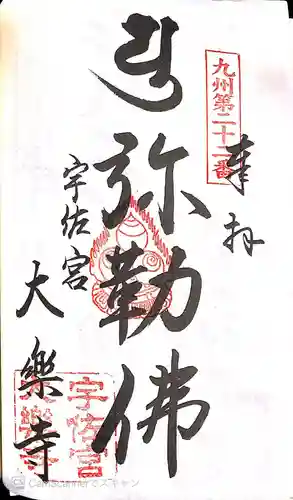 九州第二十二番
奉拝
弥勒佛
宇佐宮
大樂寺
宇佐宮
大樂寺
CamScannerでスキャン